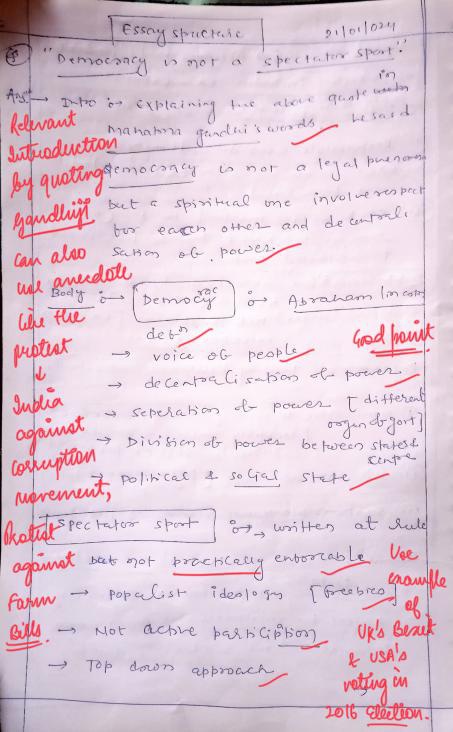 Essay structure
21/01/024
"Democracy is not a spectator sport".
Ans → Intro :→ explaining the above quote in
mahatma gandhi's words he said
democracy is not a legal
but a spiritual one involve respect
for each other and decentrali
sation of power.
Relevant
Introduction
by quoting
Gandhiji
can also
use anecdote
like the
protest
↓
India
against
corruption
movement,
Protest
against
Farm
Bills.
Body :→ Democracy :→ Abraham lincoln
defn
Good point
→ voice of people
→ decentralisation of power
→ seperation of power [different
organ of govt]
→ Division of power between states &
centre
→ political & social state
Spectator sport :→ written at rule
but not practically enforcable
→ populist ideology [freebies]
→ Not active participation
→ Top down approach
Use
example
of
UK's Brexit
& USA's
voting in
2016 election.